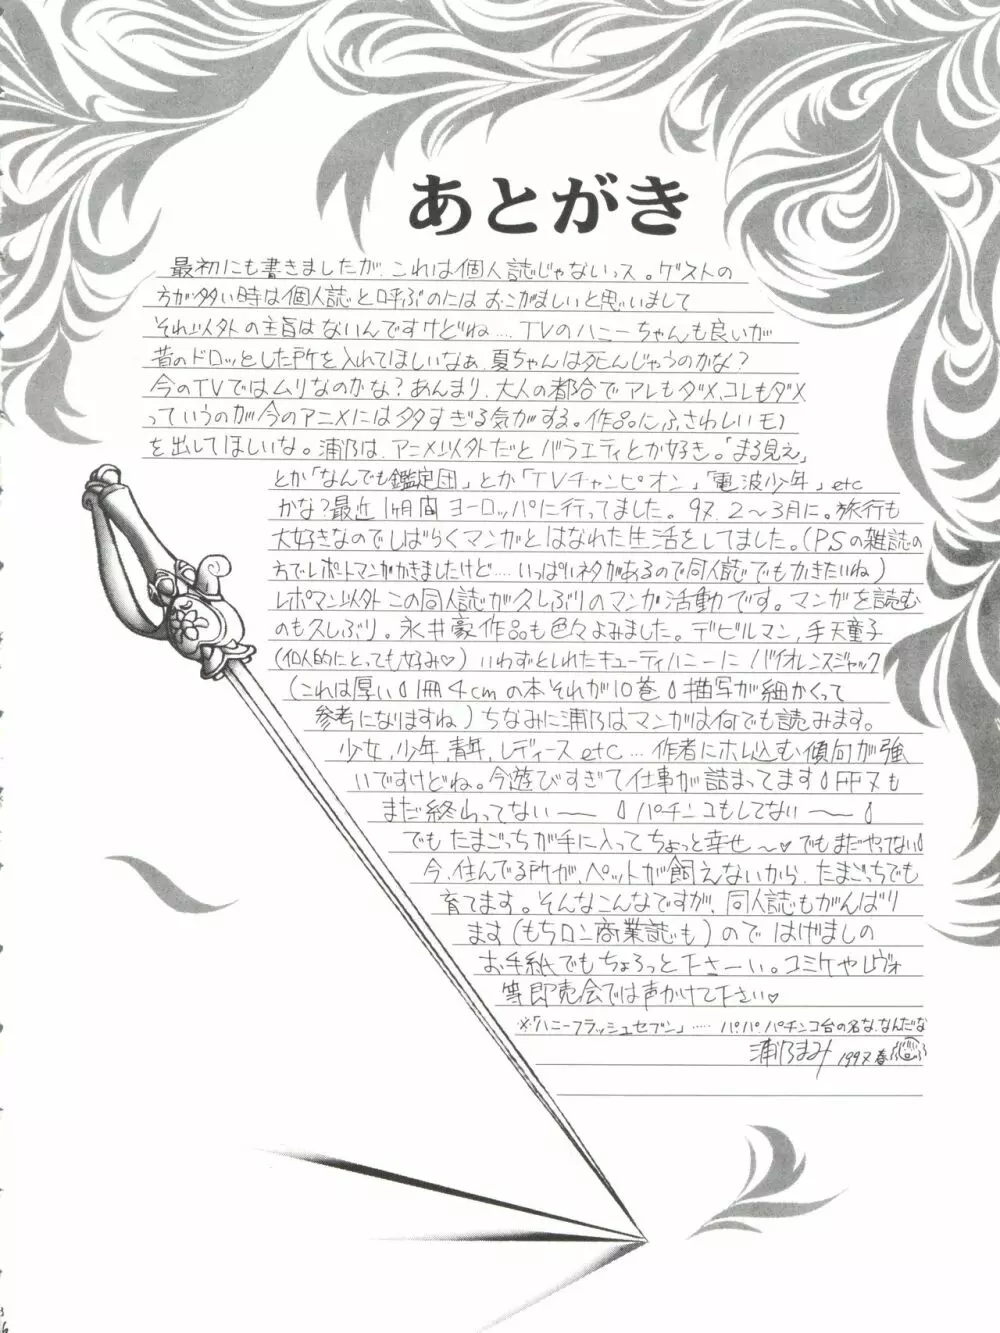 あとがき
最初にも書きましたが、これは個人誌じゃないっス。ゲストの
方が多い時は個人誌と呼ぶのにはおこがましいと思いまして
それ以外の主旨はないんですけどね‥‥TVのハニーちゃんも良いが
昔のドロッとした所を入れてほしいなぁ、夏ちゃんは死んじゃうのかな?
今のTVではムリなのかな?あんまり、大人の都合でアレもダメ、コレもダメ
っていうのが今のアニメには多すぎる気がする。作品にふさわしいモノ
を出してほしいな。浦乃は、アニメ以外だとバラエティとか好き。「まる見え」
とか「なんでも鑑定団」とか「TVチャンピオン」「電波少年」etc
かな?最近1ヶ月間ヨーロッパに行ってました。97. 2〜3月に。旅行も
大好きなのでしばらくマンガとはなれた生活をしてました。(PSの雑誌の
方でレポートマンガかきましたけど‥‥いっぱいネタがあるので同人誌でもかきたいね)
レポマン以外この同人誌が久しぶりのマンガ活動です。マンガを読む
のも久しぶり。永井豪作品も色々よみました。デビルマン,手天童子
(個人的にとっても好み♡)いわずとしれたキューティハニーにバイオレンスジャック
(これは厚い 1冊4cmの本それが10巻 描写が細かくって
参考になりますね)ちなみに浦乃はマンガは何でも読みます。
少女,少年,青年,レディースetc…作者にホレ込む傾向が強
いですけどね。今遊びすぎて仕事が詰まってます FF7も
まだ終わってない〜 パチンコもしてない〜
でもたまごっちが手に入ってちょっと幸せ〜♡でもまだやってない
今、住んでる所が、ペットが飼えないから、たまごっちでも
育てます。そんなこんなですが、同人誌もがんばり
ます(もちロン商業誌も)のではげましの
お手紙でもちょろっと下さーい。コミケやレヴォ
等即売会では声かけて下さい♡
※「ハニーフラッシュセブン」‥‥パ,パ,パチンコ台の名な、なんだな
浦乃まみ 1997.春